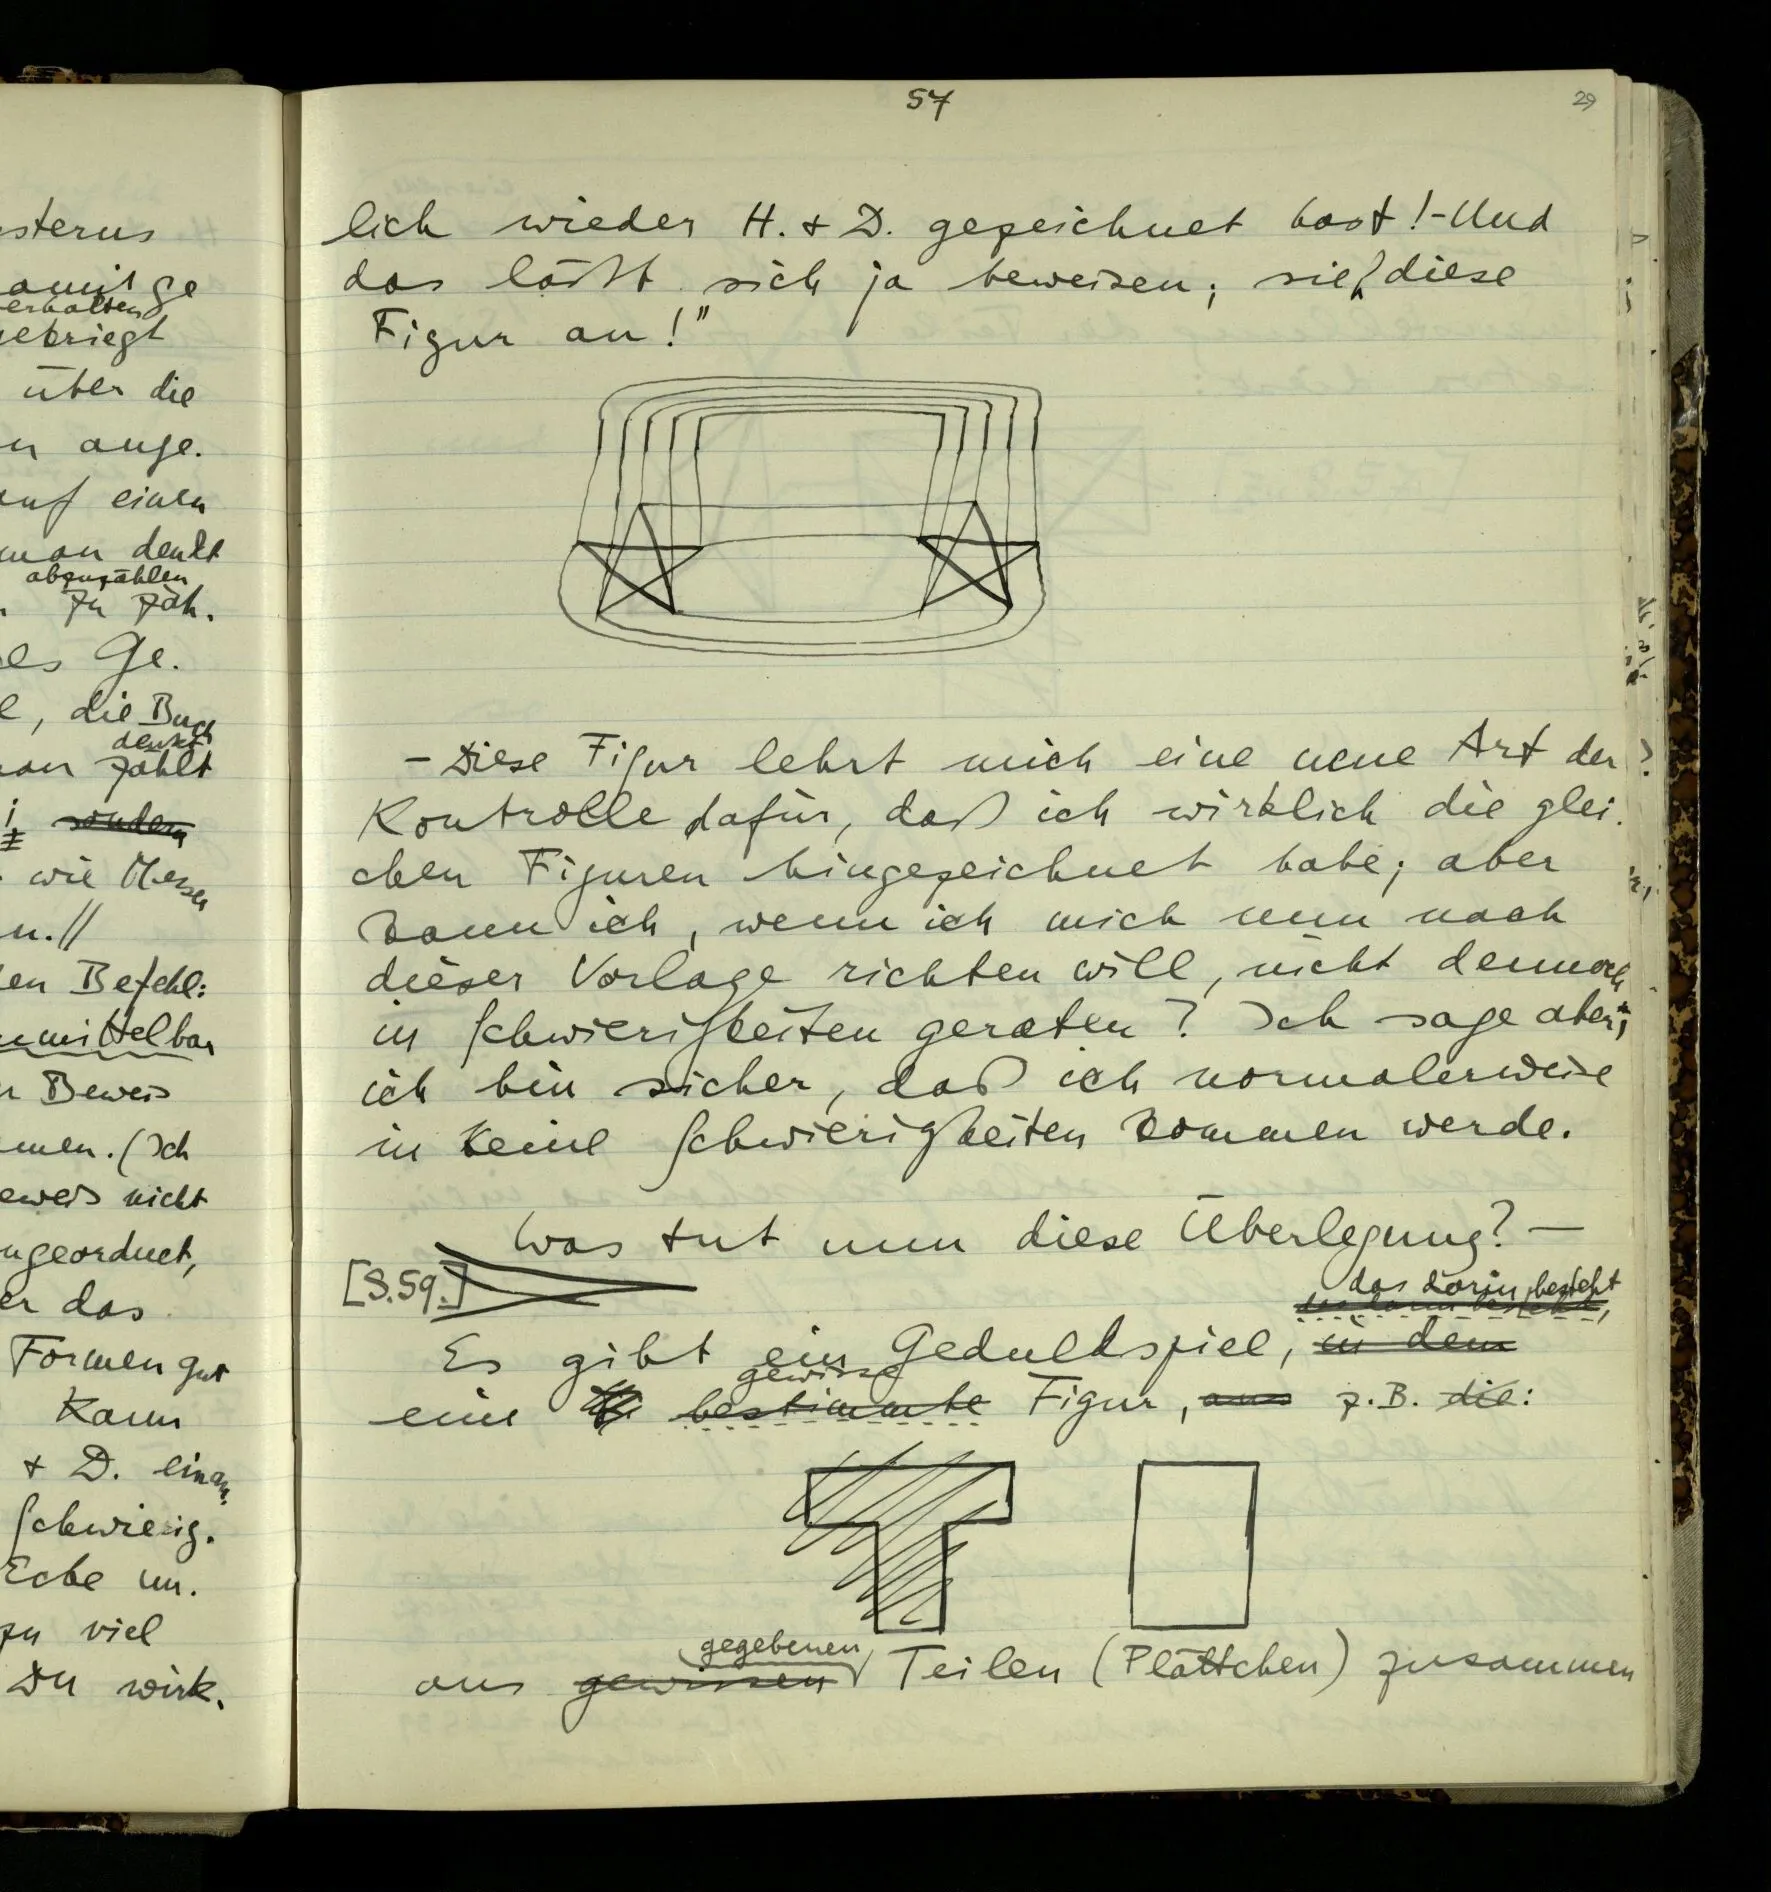 sterus
damit ge
erhalten
gekriegt
über die
n ange.
auf einen
man denkt
abzuzählen
zu zäh.
es Ge.
e, die Buch
denkt
man zählt
i sondern
wie Messer
n.//
den Befehl:
unmittelbar
r Beweis
men. (Ich
Beweis nicht
ngeordnet,
er das
Formen gut
Kann
+ D. einan,
Schwierig.
Ecke un.
zu viel
Du wirk.
57
29
lich wieder H. + D. gezeichnet hast! – Und
das läßt sich ja beweisen; sieh diese
Figur an!"
– Diese Figur lehrt mich eine neue Art der
Kontrolle dafür, daß ich wirklich die glei.
chen Figuren hingezeichnet habe; aber
kann ich, wenn ich mich nun nach
dieser Vorlage richten will, nicht dennoch
in Schwierigkeiten geraten? Ich sage aber,
ich bin sicher, daß ich normalerweise
in keine Schwierigkeiten kommen werde.
Was tut nun diese Überlegung? –
[S.59.]
das darin besteht
das darin besteht,
Es gibt ein Geduldspiel, in dem
gewisse
eine bestimmte Figur, aus z.B. die:
gegebenen
aus gewissen Teilen (Plättchen) zusammen